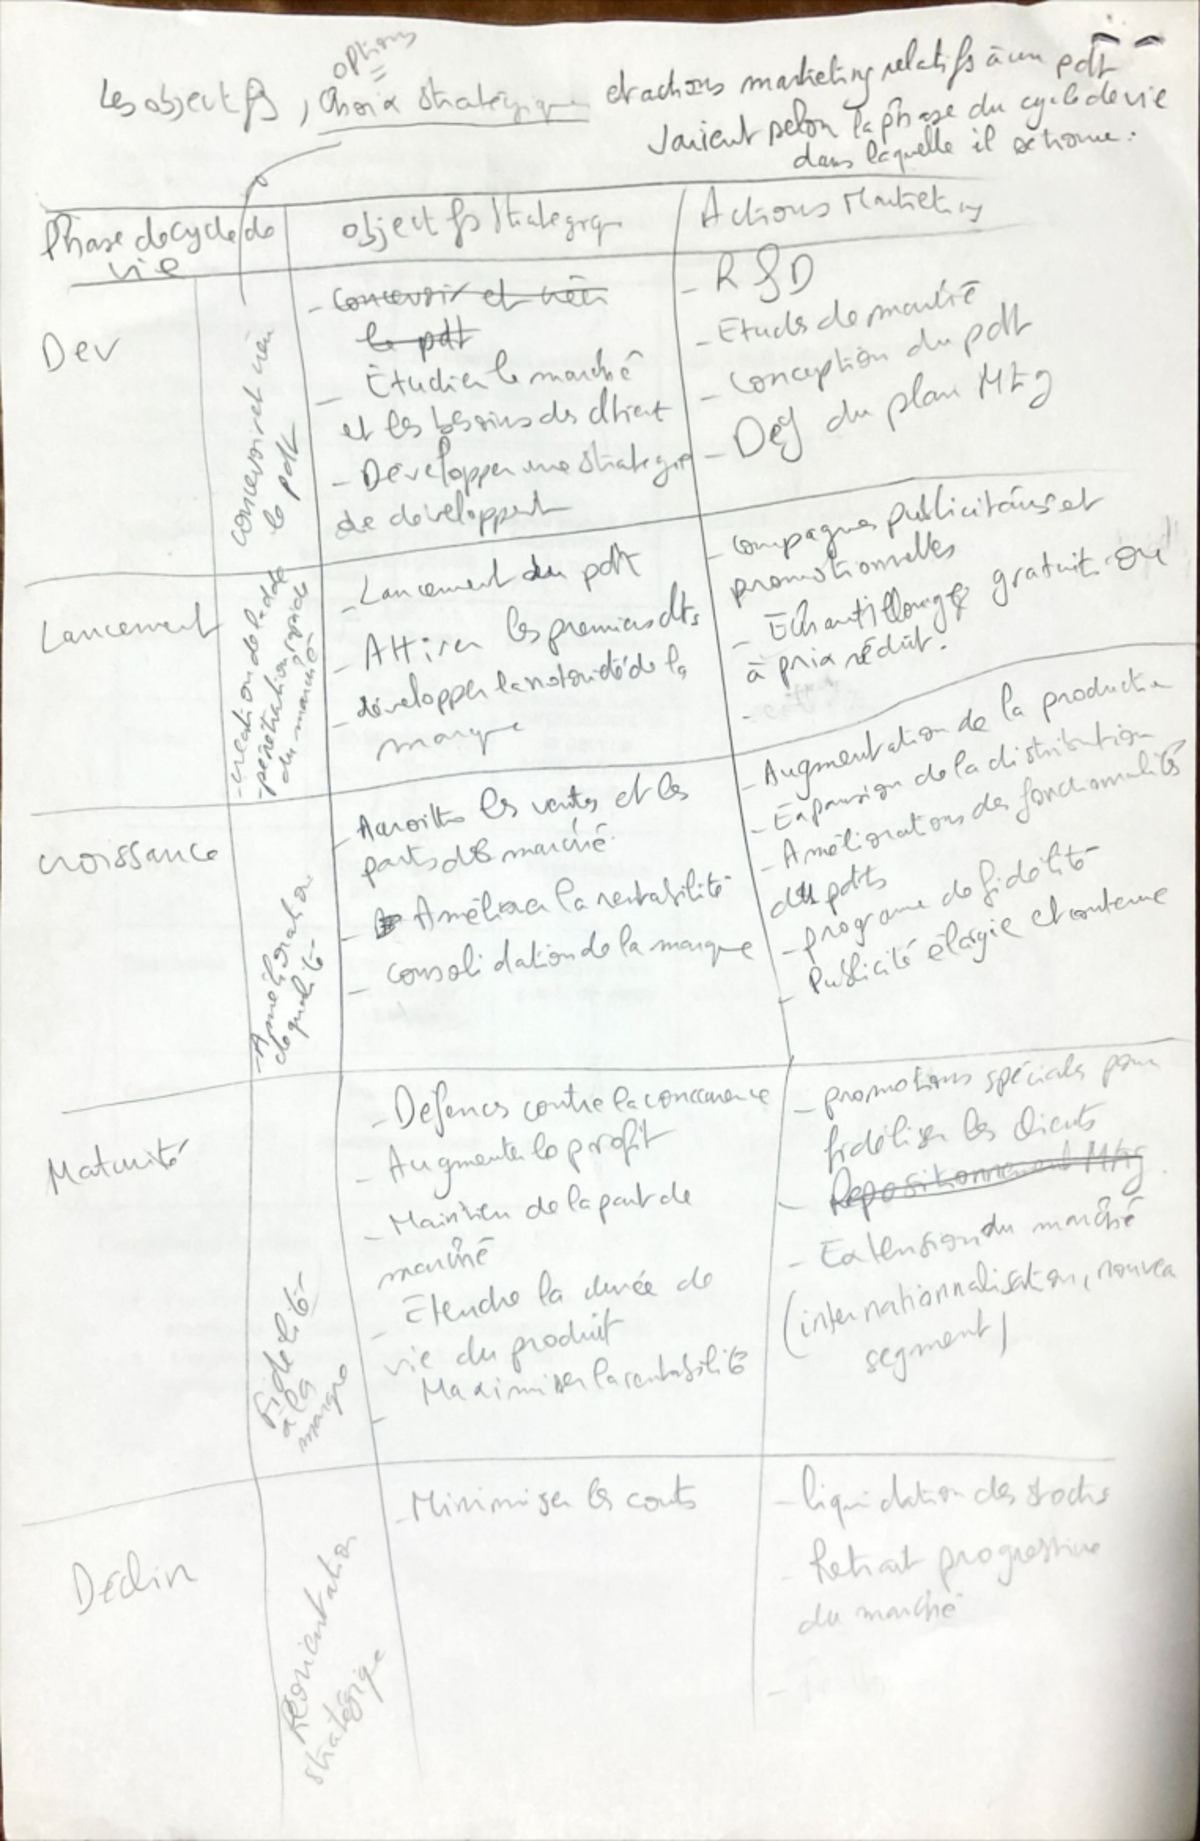 options
=
Les objectifs, choix stratégique et actions marketing relatifs à un pdt
varient selon la phase du cycle de vie
dans laquelle il se trouve.
Phase de cycle de
vie
objectifs stratégique
Actions Marketing
Dev
concevoir et créer
le pdt
- concevoir et créer
le pdt
- Étudier le marché
et les besoins des client
- Développer une stratégie
de développent
- R & D
- Etudes de marché
- Conception du pdt
- Dég du plan Mkg
Lancement
- création de
- pénétration rapide
du marché
- Lancement du pdt
- Attirer les premiers clts
- développer la notoriété de la
marque
- compagnes publicitaires et
promotionnelles
- Echantillonage gratuit ou
à prix réduit.
-
croissance
- Amélioration
de qualité
- Accroitre les ventes et les
parts de marché
- Améliorer la rentabilité
- consolidation de la marque
- Augmentation de la production
- Expansion de la distribution
- Améliorations des fonctionnalités
du pdts
- programe de fidélité
- Publicité élargie et continue
Maturité
Fidélité
à la
marque
- Défences contre la concurrence
- Augmenter le profit
- Maintien de la part de
marché
- Etendre la durée de
vie du produit
- Maximiser la rentabilité
- promotions spéciales pour
fidéliser les clients
- Repositionnement Mkg
- Extension du marché
(internationnalisation, nouvea
segment)
Déclin
Réorientation
stratégique
- Minimiser les couts
- liquidation des stocks
- Retrait progressive
du marché
-